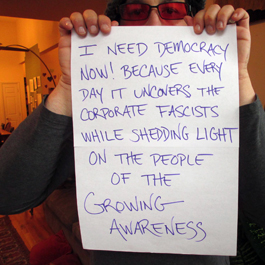 I NEED DEMOCRACY
NOW! BECAUSE EVERY
DAY IT UNCOVERS THE
CORPORATE FASCISTS
WHILE SHEDDING LIGHT
ON THE PEOPLE
OF THE
GROWING
AWARENESS